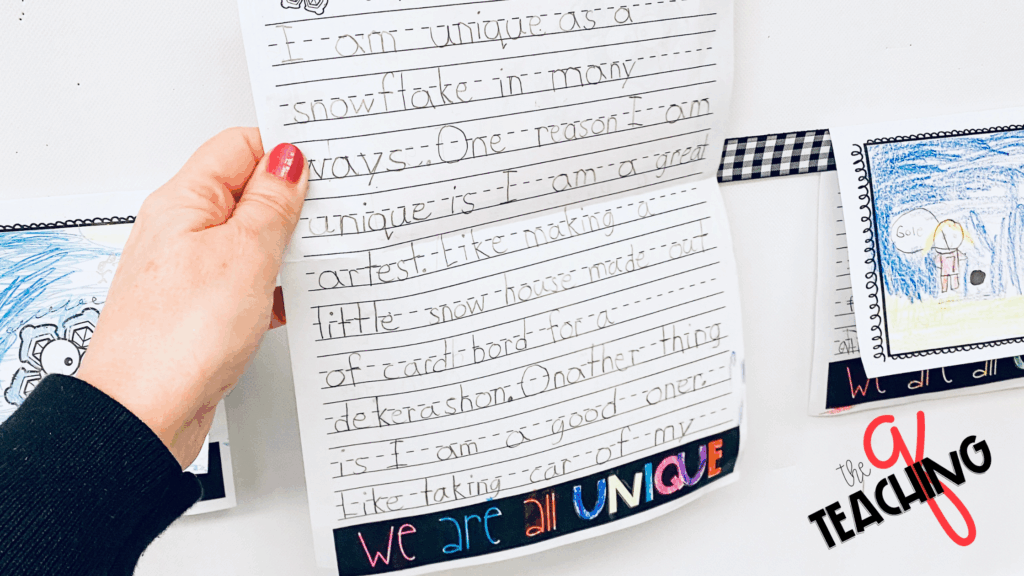 I am unique as a
snowflake in many
ways. One reason I am
unique is I am a great
artest. Like making a
little snow house made out
of card bord for a
dekerashon. Onather thing
is I am a good oner.
Like taking car of my
we are all UNIQUE
Gulc
we are all
the
TEACHING